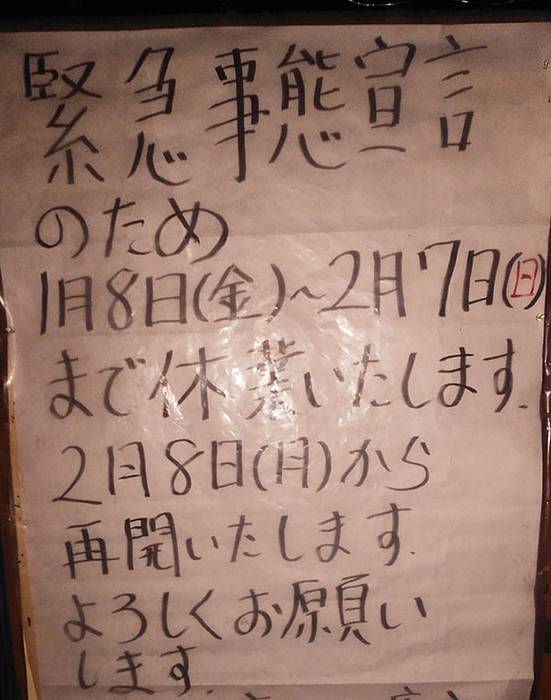 緊急事態宣言
のため
1月8日(金)~2月7日(日)
まで休業いたします.
2月8日(月)から
再開いたします.
よろしくお願い
します.